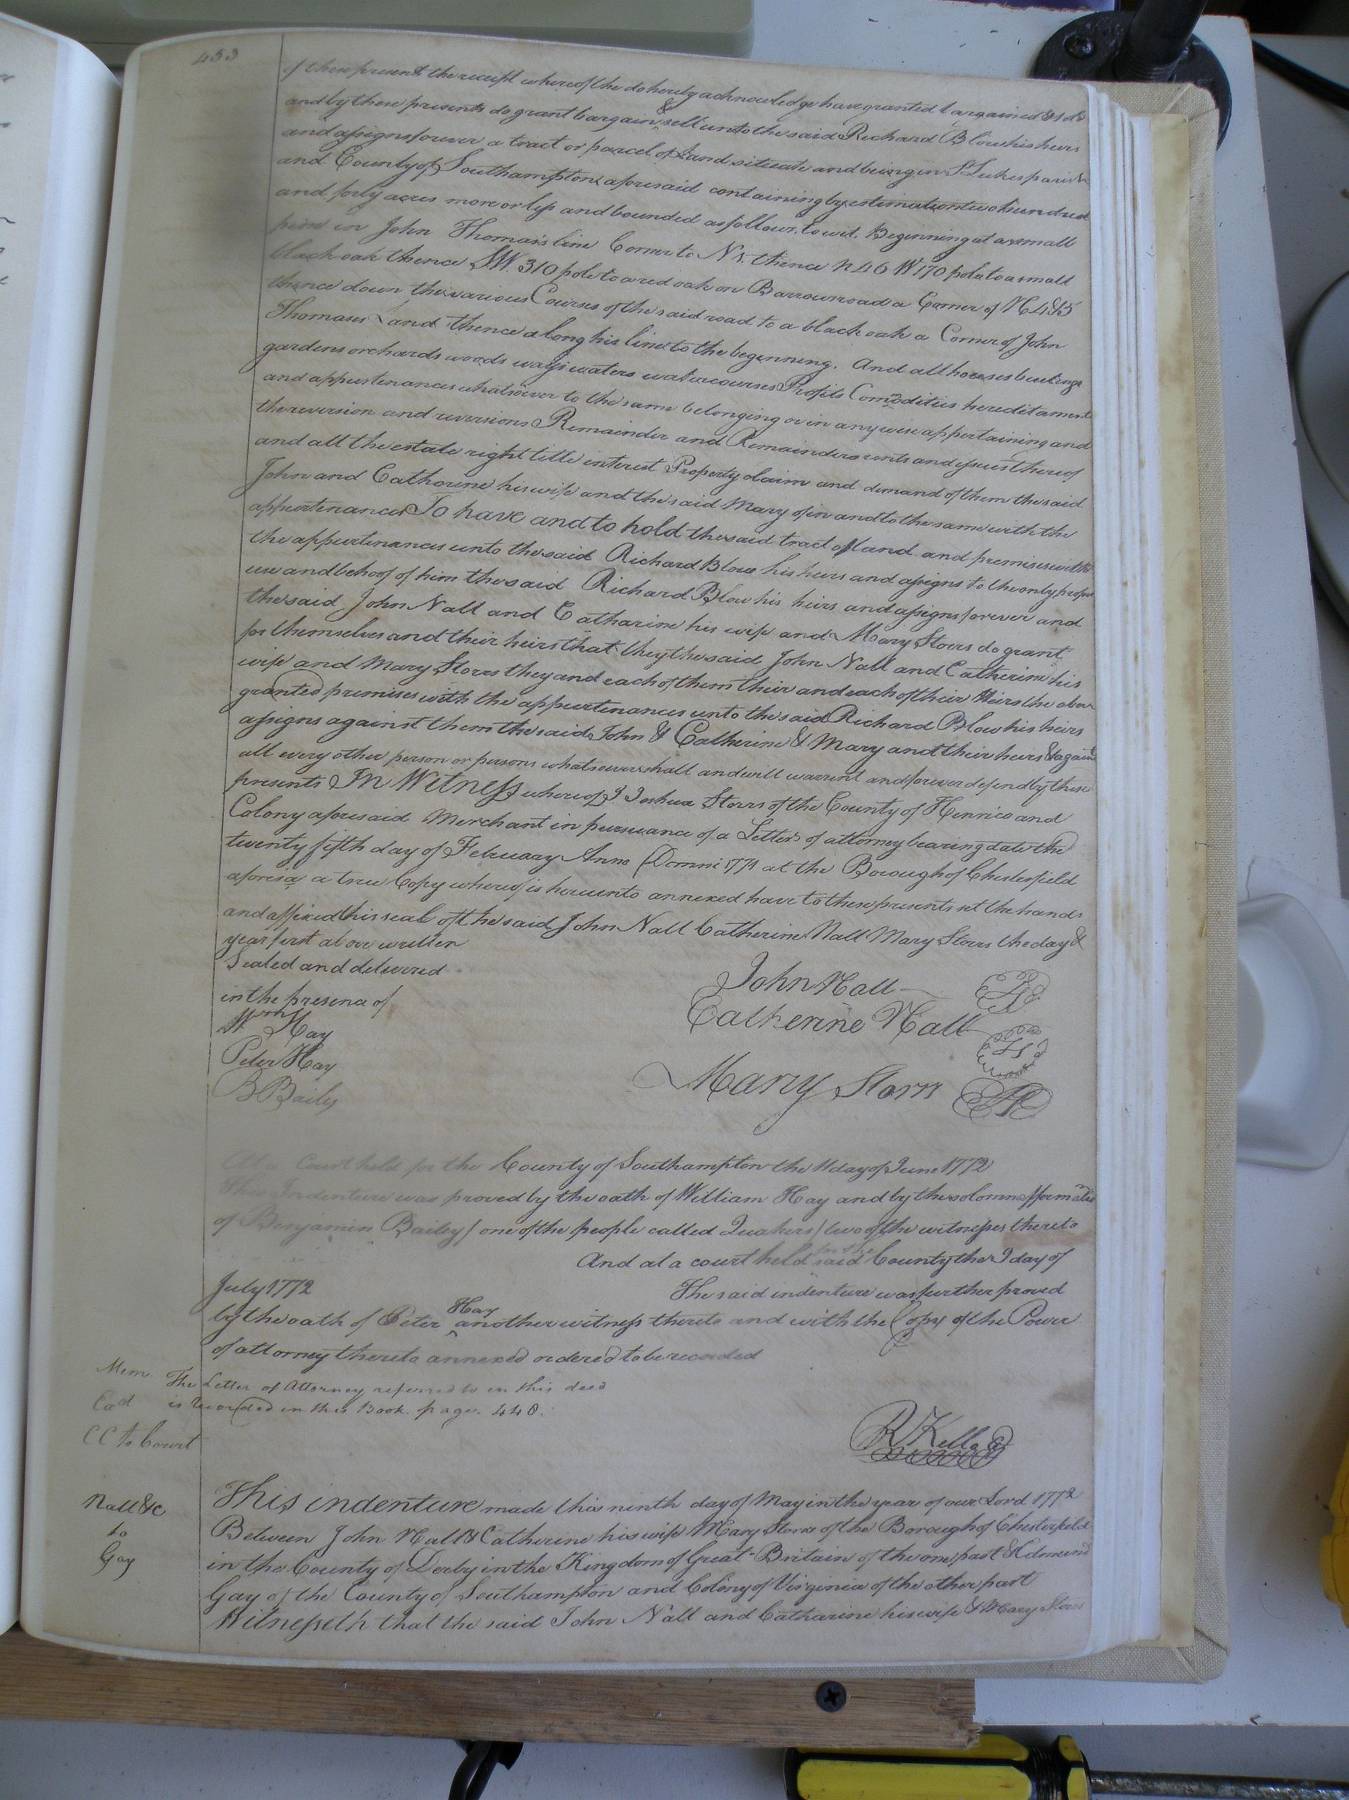 453
of these presents the receipt whereof the do hereby acknowledge have granted bargained & sold
and by these presents do grant bargain & sell unto the said Richard Blow his heirs
and assigns forever a tract or parcel of Land situate and being in St Lukes parish
and County of Southampton aforesaid containing by estimation two hundred
and forty acres more or less and bounded as follows, to wit. Beginning at a small
pine in John Thomas's line Corner to N 5. thence N 46 W 170 pole to a small
black oak thence S W. 310 pole to a red oak on Barrow road a Corner of N 4 & 5
thence down the various Courses of the said road to a black oak a Corner of John
Thomases and thence along his line to the beginning. And all houses buildings
gardens orchards woods ways waters watercourses Profits Comoditiis hereditaments
and appurtenances whatsoever to the same belonging or in any wise appertaining and
the reversion and reversions Remainder and Remainders rents and issues thereof
and all the estate right title interest Property claim and demand of them the said
John and Catherine his wife and the said Mary of in and to the same with the
appurtenances To have and to hold the said tract of land and premises with
the appurtenances unto the said Richard Blow his heirs and assigns to the only proper
use and behoof of him the said Richard Blow his heirs and assigns forever and
the said John Nall and Catharine his wife and Mary Storrs do grant
for themselves and their heirs that they the said John Nall and Catherine his
wife and Mary Storrs they and each of them their and each of their Heirs the above
granted premises with the appurtenances unto the said Richard Blow his heirs
assigns against them the said John & Catherine & Mary and their heirs & against
all every other person or persons whatsoever shall and will warrant and forever defend by these
presents In Witness whereof I Joshua Storrs of the County of Henrico and
Colony aforesaid Merchant in pursuance of a Letter of attorney bearing date the
twenty fifth day of February Anno Domni 1771 at the Borough of Chesterfield
aforesd a true Copy whereof is hereunto annexed have to these presents set the hands
and affixed this seal of the said John Nall Catherine Nall Mary Storrs the day &
year first above written
Sealed and delivered
in the presence of
Wm Hay
Peter Hay
B Bailey
John Nall LS
Catherine Nall LS
Mary Storrs LS
At a Court held for the County of Southampton the 11 day of June 1772
This Indenture was proved by the oath of William Hay and by the solemn affirmation
of Benjamin Bailey (one of the people called Quakers) two of the witnesses thereto
And at a court held for the said County the 9 day of
July 1772 The said indenture was further proved
by the oath of Peter Hay another witness thereto and with the Copy of the Power
of attorney thereto annexed ordered to be recorded
Mem. The Letter of Attorney referred to in this deed
is recorded in this Book. page. 448.
Exd
CC to Court
R Kello
Nall &c
to
Gay
This indenture made this ninth day of May in the year of our Lord 1772
Between John Nall & Catherine his wife Mary Storrs of the Borough of Chesterfield
in the County of Derby in the Kingdom of Great-Britain of the one part & Edmund
Gay of the County of Southampton and Colony of Virginia of the other part
Witnesseth that the said John Nall and Catharine his wife & Mary Storrs